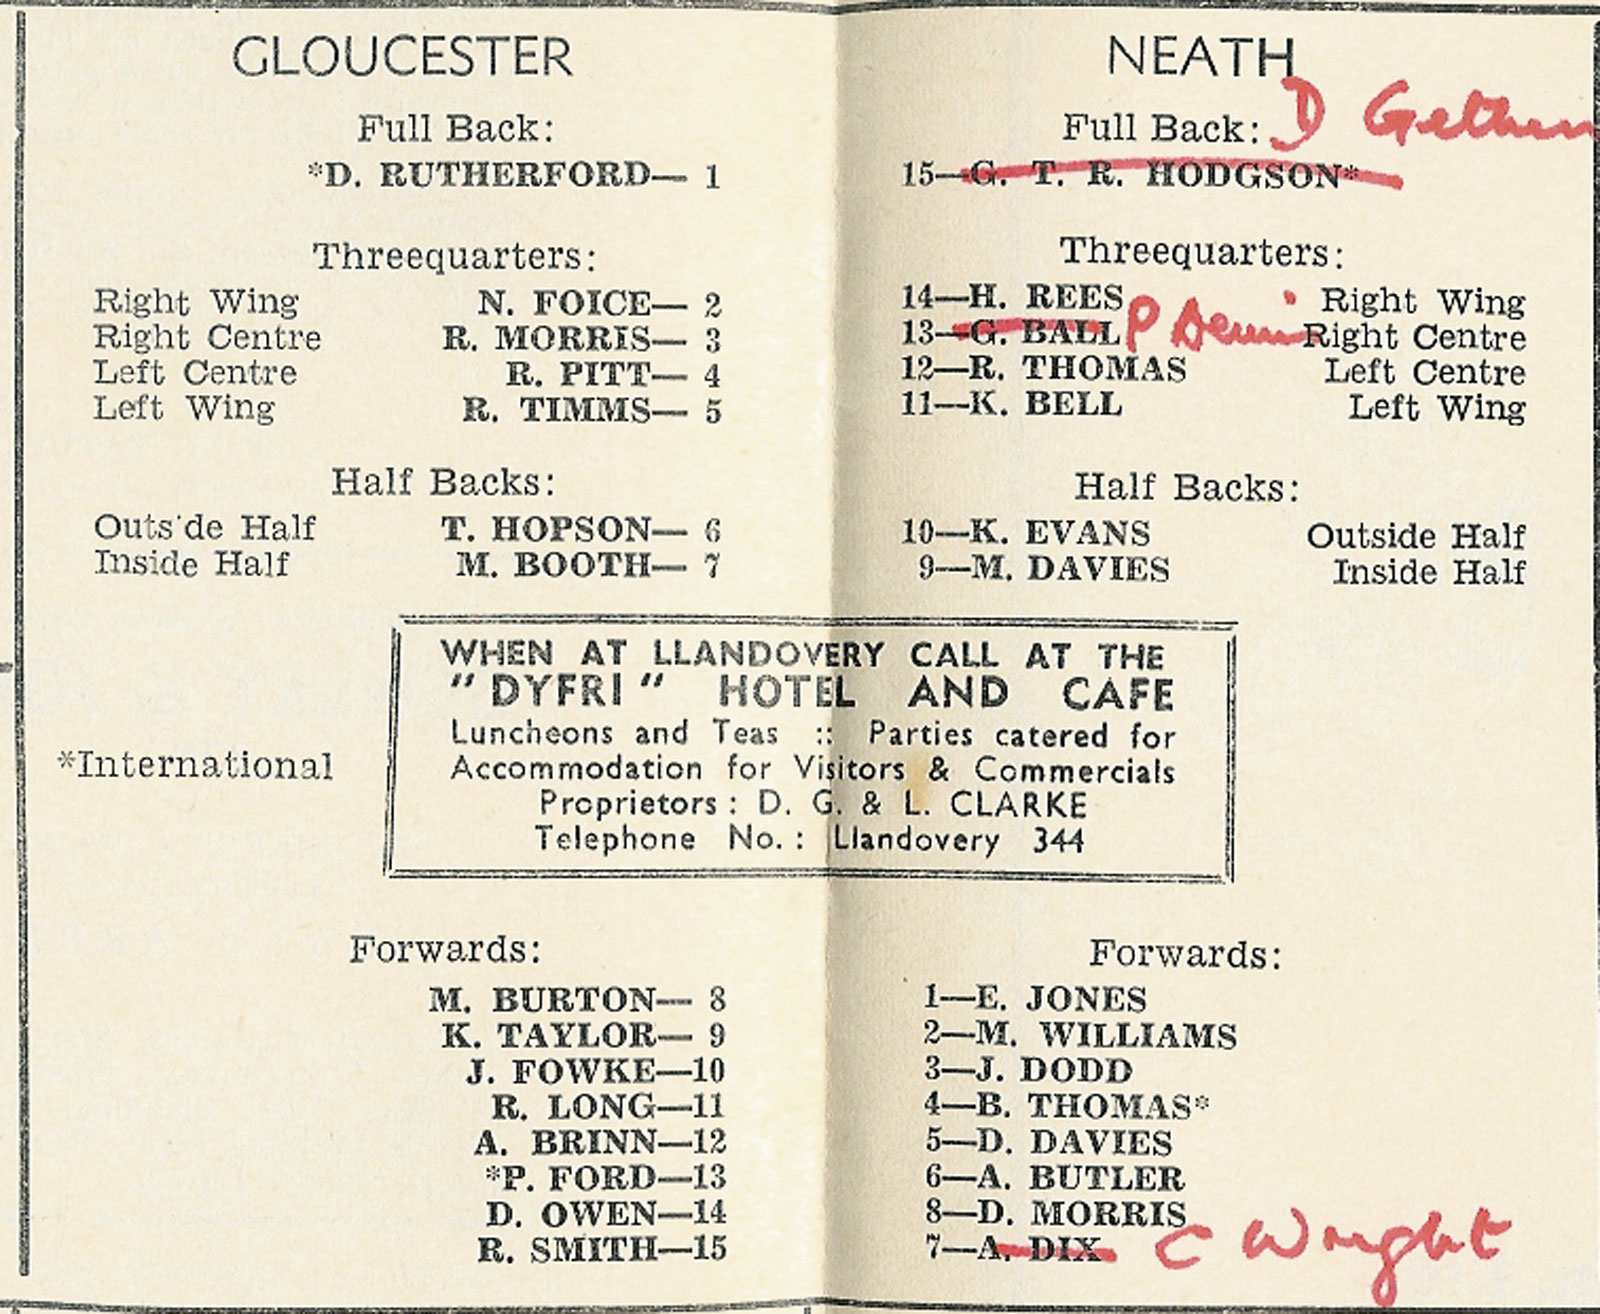 GLOUCESTER
Full Back:
*D. RUTHERFORD— 1
Threequarters:
Right Wing N. FOICE— 2
Right Centre R. MORRIS— 3
Left Centre R. PITT— 4
Left Wing R. TIMMS— 5
Half Backs:
Outs de Half T. HOPSON— 6
Inside Half M. BOOTH— 7
NEATH
Full Back: D Gethen
15—G. T. R. HODGSON*
Threequarters:
14—H. REES Right Wing
13—G. BALL P Right Centre
12—R. THOMAS Left Centre
11—K. BELL Left Wing
Half Backs:
10—K. EVANS Outside Half
9—M. DAVIES Inside Half
WHEN AT LLANDOVERY CALL AT THE
"DYFRI" HOTEL AND CAFE
Luncheons and Teas :: Parties catered for
Accommodation for Visitors & Commercials
Proprietors : D. G. & L. CLARKE
Telephone No. : Llandovery 344
*International
Forwards:
M. BURTON— 8
K. TAYLOR— 9
J. FOWKE—10
R. LONG—11
A. BRINN—12
*P. FORD—13
D. OWEN—14
R. SMITH—15
Forwards:
1—E. JONES
2—M. WILLIAMS
3—J. DODD
4—B. THOMAS*
5—D. DAVIES
6—A. BUTLER
8—D. MORRIS
7—A. DIX C Wright